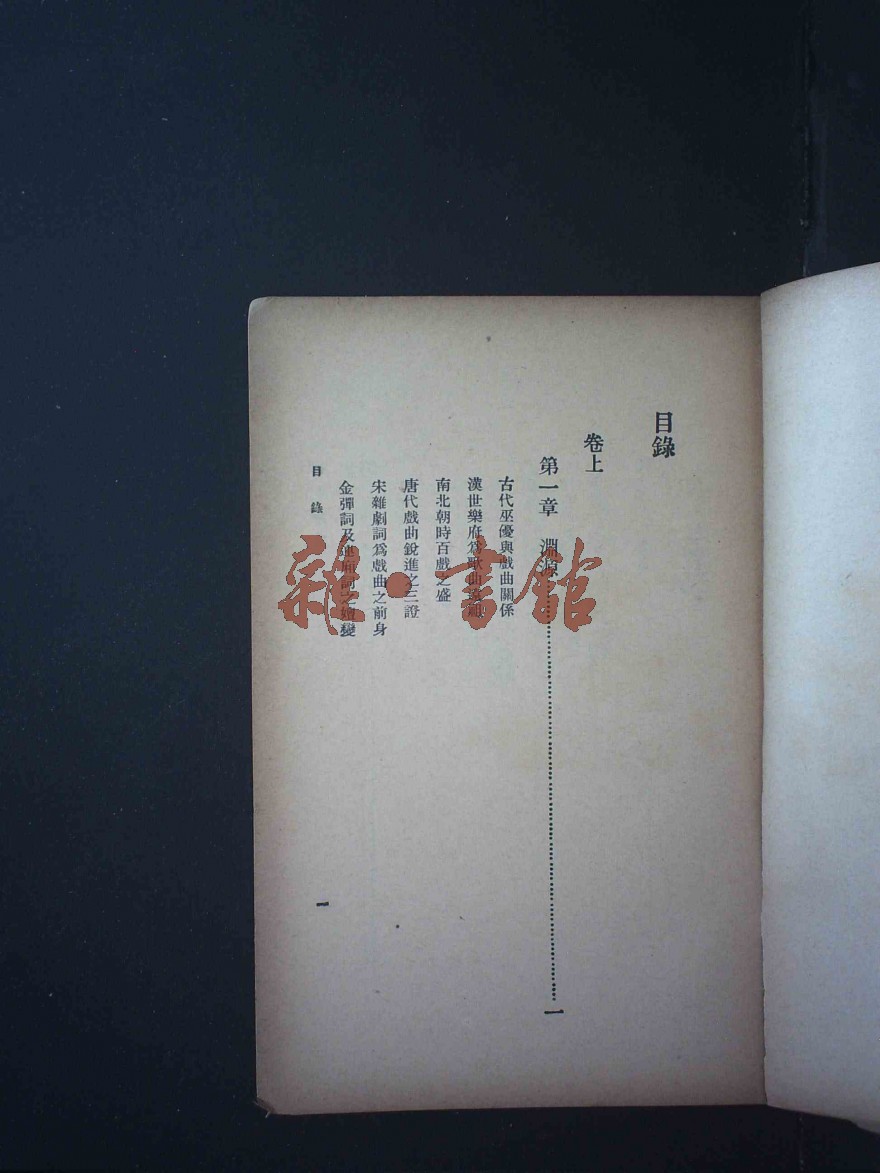 目錄
卷上
第一章 淵源……一
古代巫優與戲曲關係
漢世樂府爲歌曲
南北朝時百戲之盛
唐代戲曲銳進之三證
宋雜劇詞爲戲曲之前身
金彈詞及連廂詞之嬗變
目錄
一
雜·書館